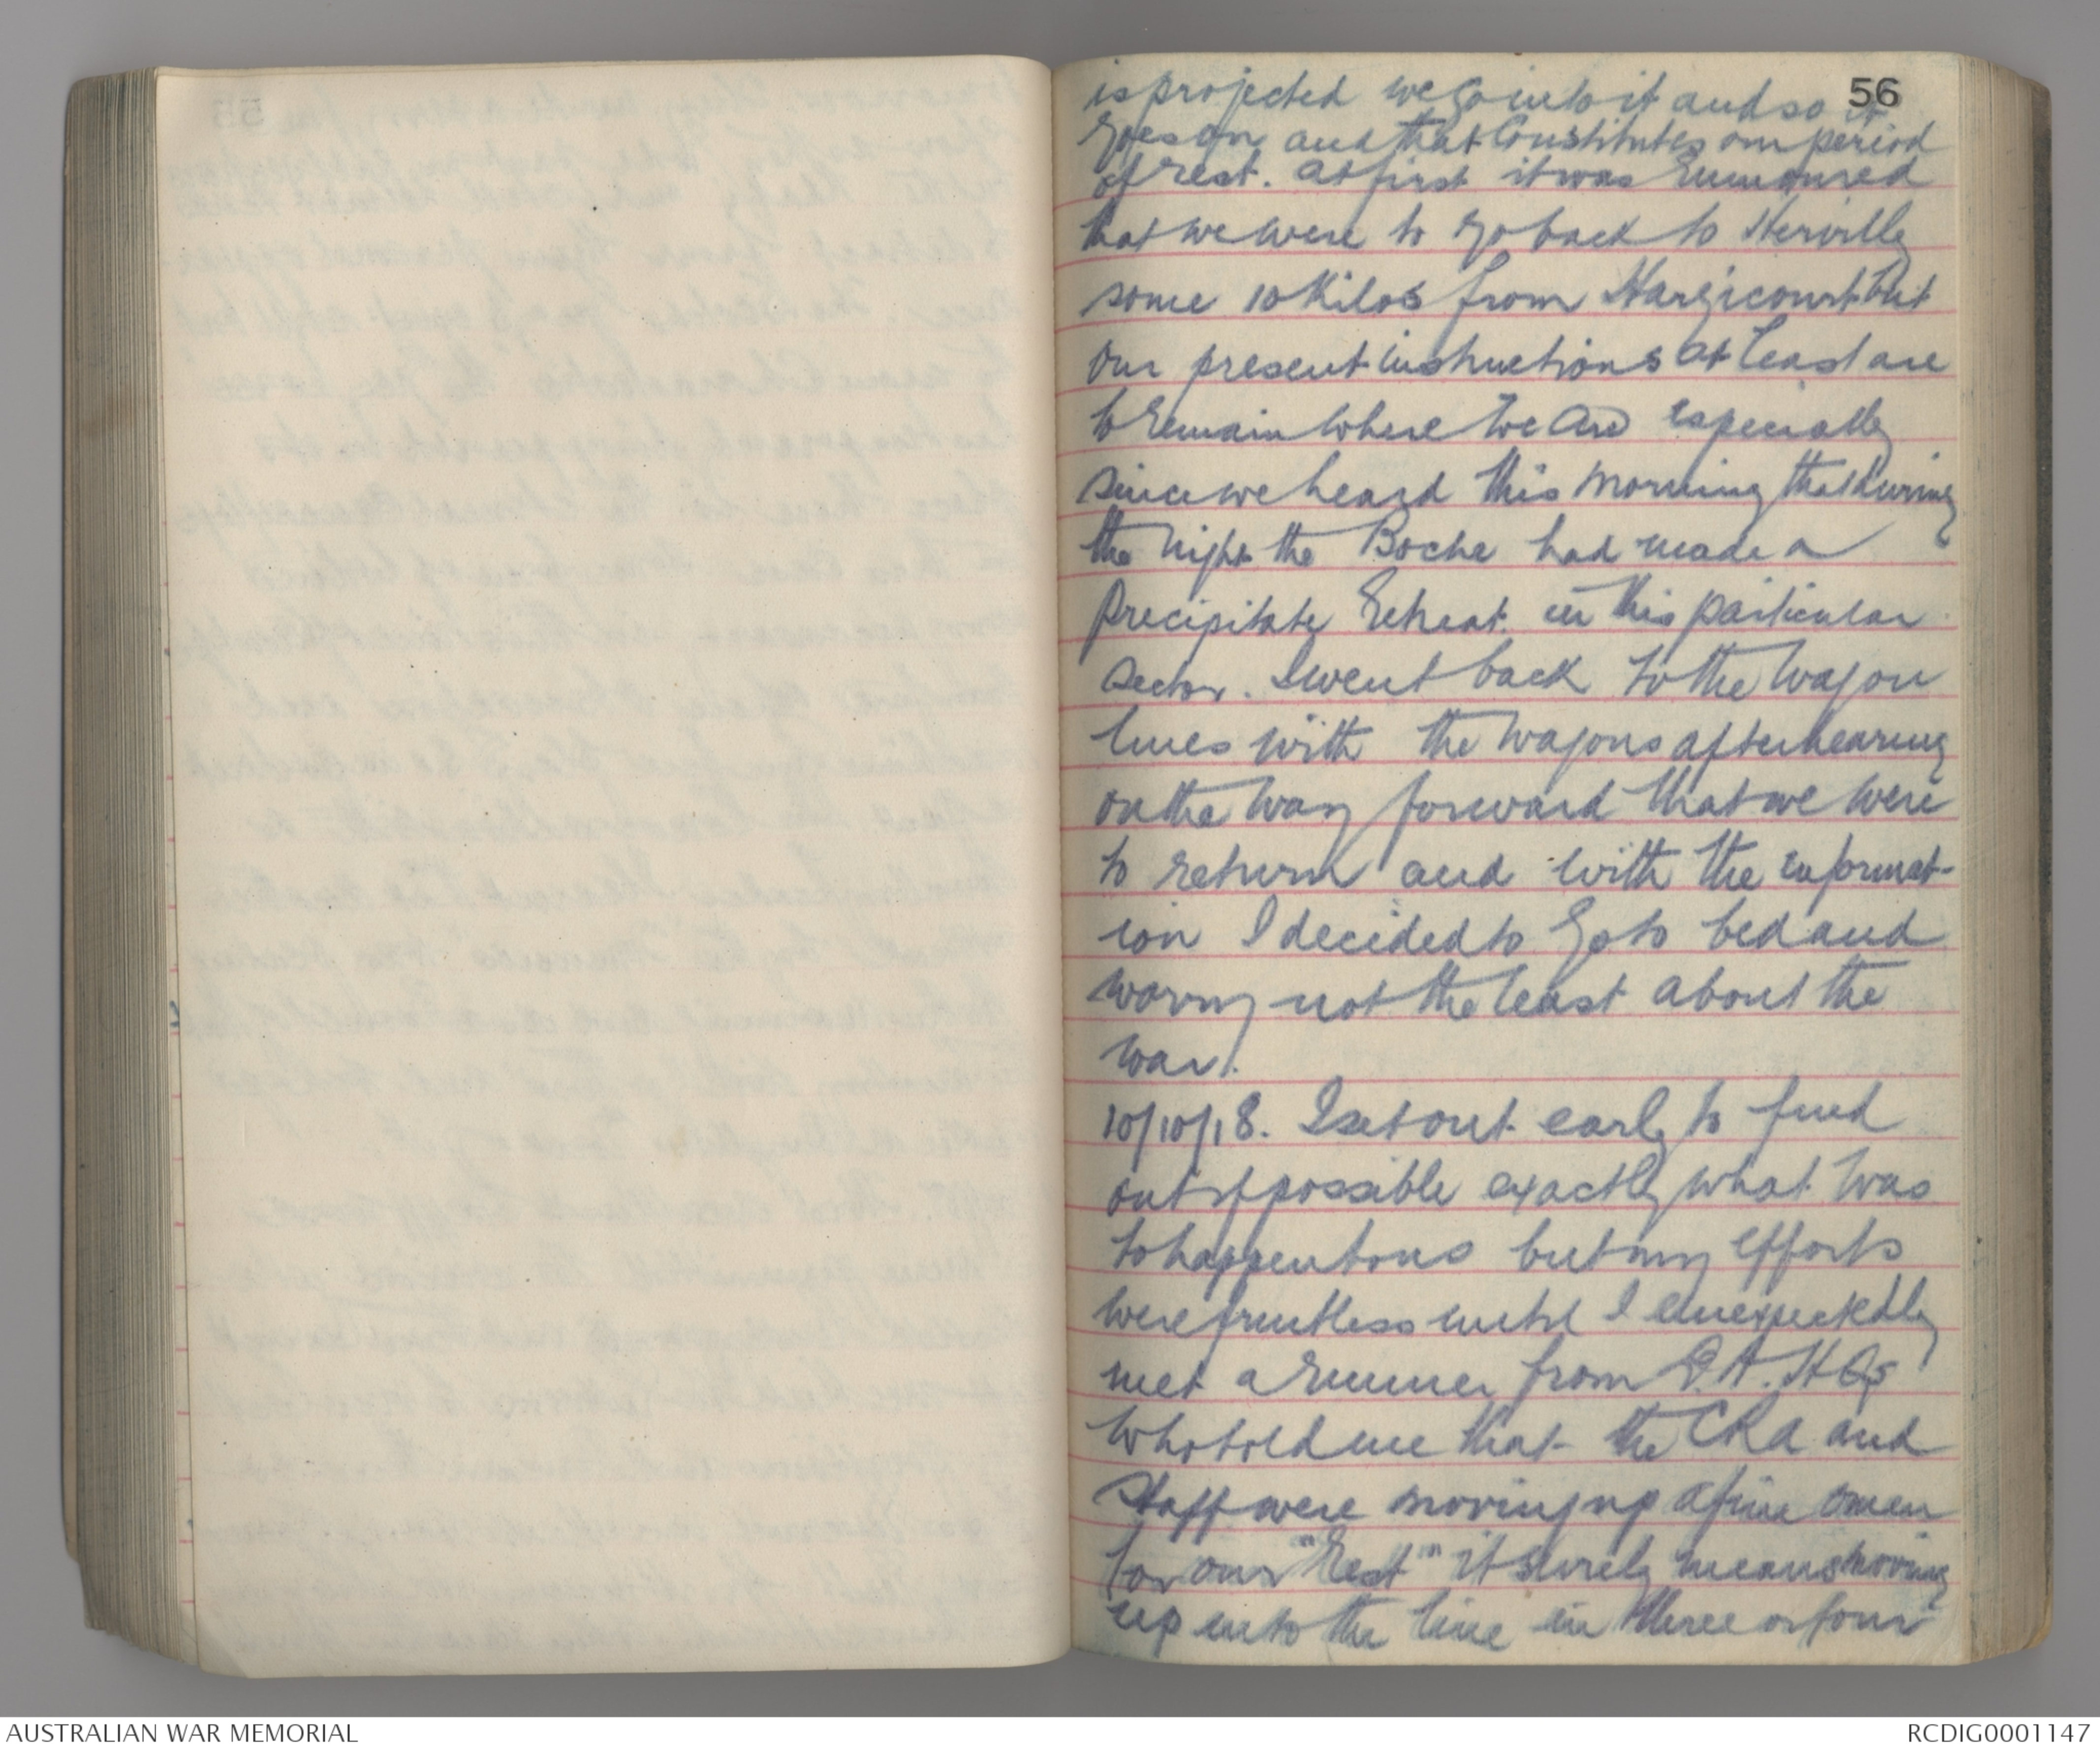 56
is projected we go into it and so it
goes on and that constitutes our period
of rest. At first it was rumoured
that we were to go back to Hervilly
some 10 Kilos from Hargicourt but
our present instructions at least are
to remain where we are especially
since we heard this morning that during
the night the Boche had made a
precipitate retreat in this particular
sector. I went back to the wagon
lines with the wagons after hearing
on the way forward that we were
to return and with the informat-
ion I decided to go to bed and
worry not the least about the
war.
10/10/18. I set out early to find
out if possible exactly what was
to happen to us but my efforts
were fruitless until I unexpectedly
met a runner from D.A. HQs
who told me that the CRA and
Staff were moving up a fine omen
for our "Rest" it surely means moving
up into the line in three or four
AUSTRALIAN WAR MEMORIAL
RCDIG0001147